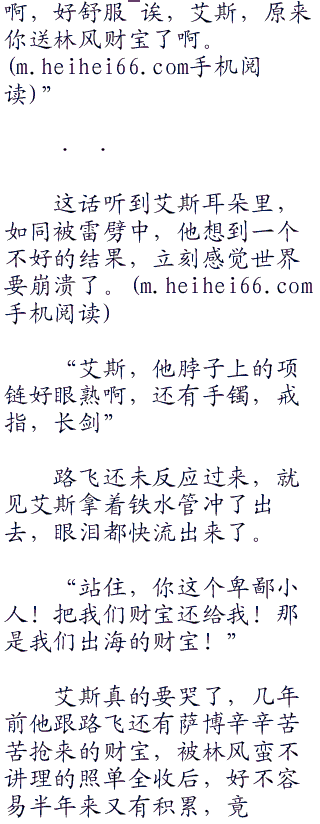 啊，好舒服~诶，艾斯，原来
你送林风财宝了啊。
(m.heihei66.com手机阅
读)”
．．
这话听到艾斯耳朵里，
如同被雷劈中，他想到一个
不好的结果，立刻感觉世界
要崩溃了。(m.heihei66.com
手机阅读)
“艾斯，他脖子上的项
链好眼熟啊，还有手镯，戒
指，长剑”
路飞还未反应过来，就
见艾斯拿着铁水管冲了出
去，眼泪都快流出来了。
“站住，你这个卑鄙小
人！把我们财宝还给我！那
是我们出海的财宝！”
艾斯真的要哭了，几年
前他跟路飞还有萨博辛辛苦
苦抢来的财宝，被林风蛮不
讲理的照单全收后，好不容
易半年来又有积累，竟